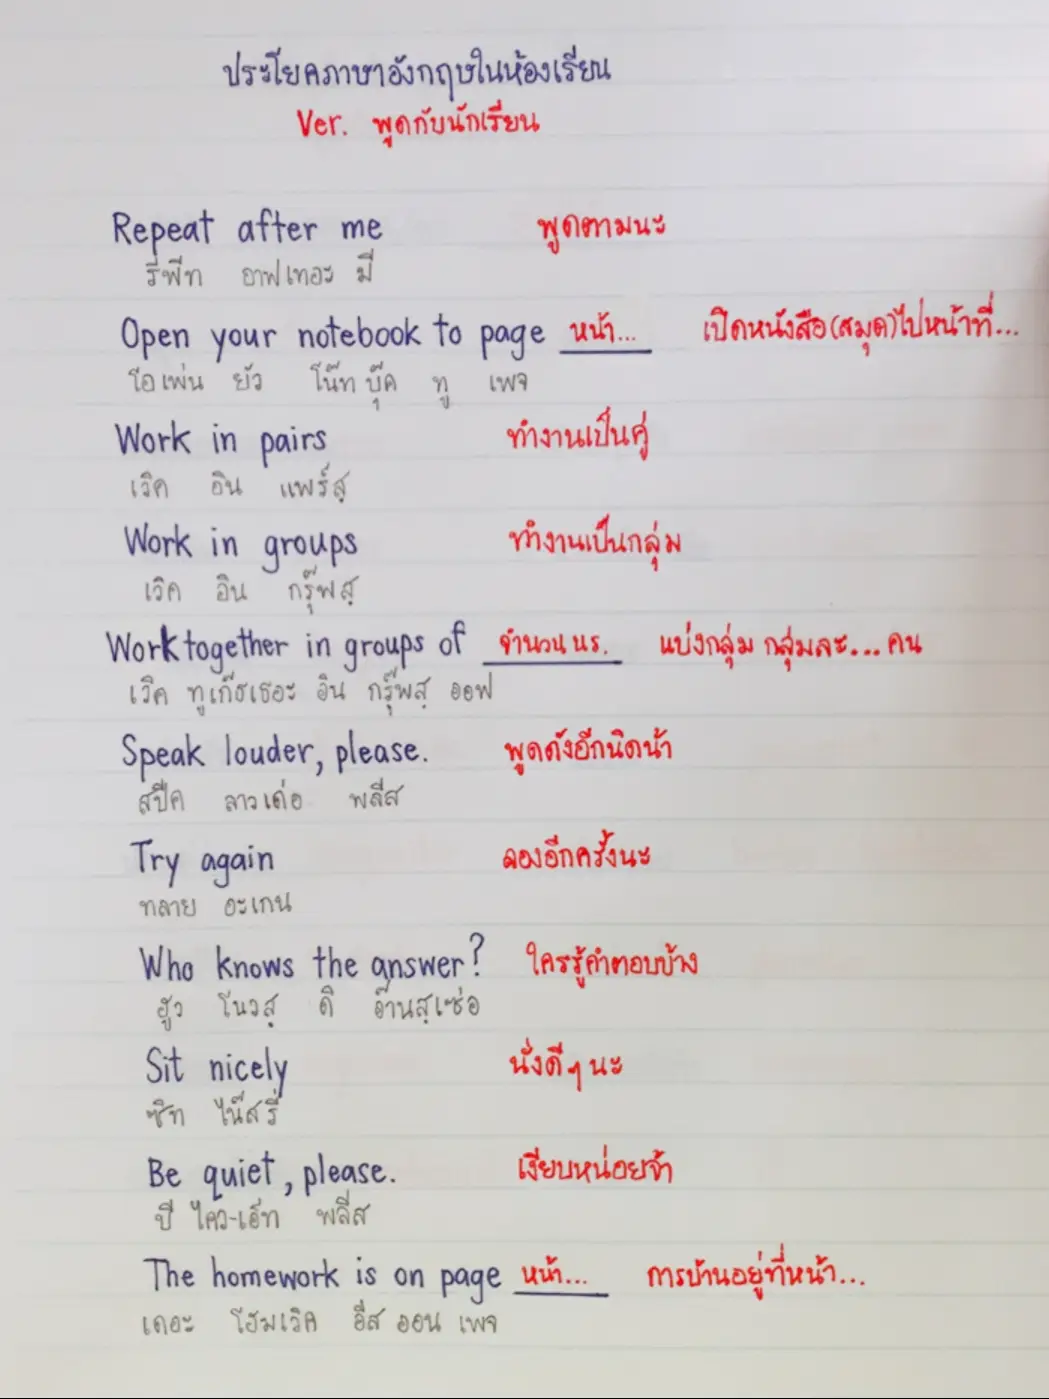 ประโยคภาษาอังกฤษในห้องเรียน
Ver. พูดกับนักเรียน
Repeat after me พูดตามนะ
รีพีท อาฟเทอะ มี
Open your notebook to page หน้า... เปิดหนังสือ(สมุด)ไปหน้าที่...
โอเพ่น ยัว โน๊ทบุ๊ค ทู เพจ
Work in pairs ทำงานเป็นคู่
เวิค อิน แพร์สฺ
Work in groups ทำงานเป็นกลุ่ม
เวิค อิน กรุ๊ฟสฺ
Work together in groups of จำนวน นร. แบ่งกลุ่ม กลุ่มละ...คน
เวิค ทูเก๊ธเธอะ อิน กรุ๊พสฺ ออฟ
Speak louder, please. พูดดังอีกนิดน้า
สปีค ลาวเด่อ พลีส
Try again ลองอีกครั้งนะ
ทลาย อะเกน
Who knows the answer? ใครรู้คำตอบบ้าง
ฮูว โนวสฺ ดิ อ๊านสฺเซ่อ
Sit nicely นั่งดีๆนะ
ซิท ไน๊สรี่
Be quiet, please. เงียบหน่อยจ้า
บี ไคว-เอ็ท พลี่ส
The homework is on page หน้า... การบ้านอยู่ที่หน้า...
เดอะ โฮมเวิค อีส ออน เพจ